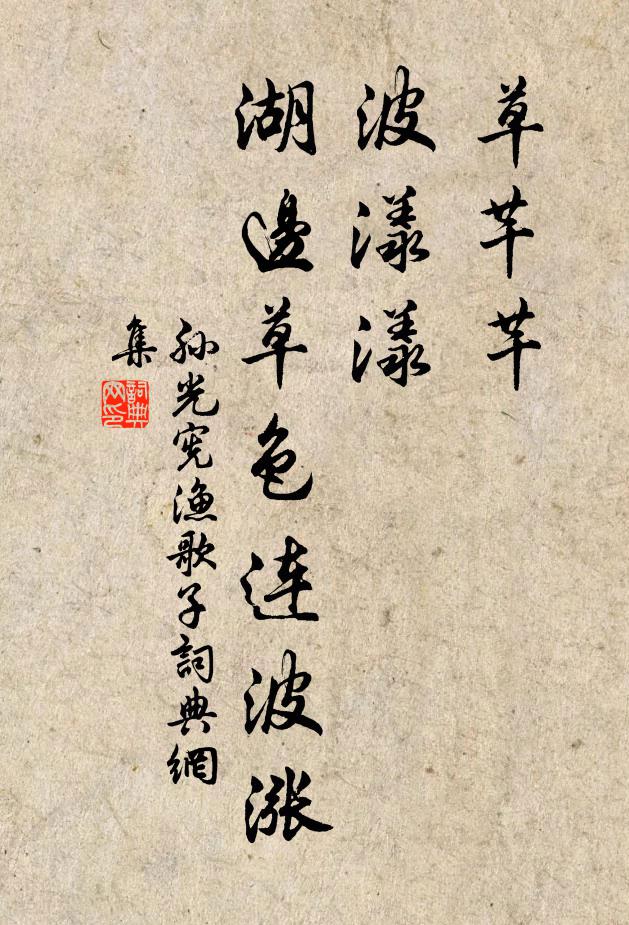 草芊芊
波漾漾
湖邊草色連波漲
孫光宪漁歌子詞典網
集
詞典
网印